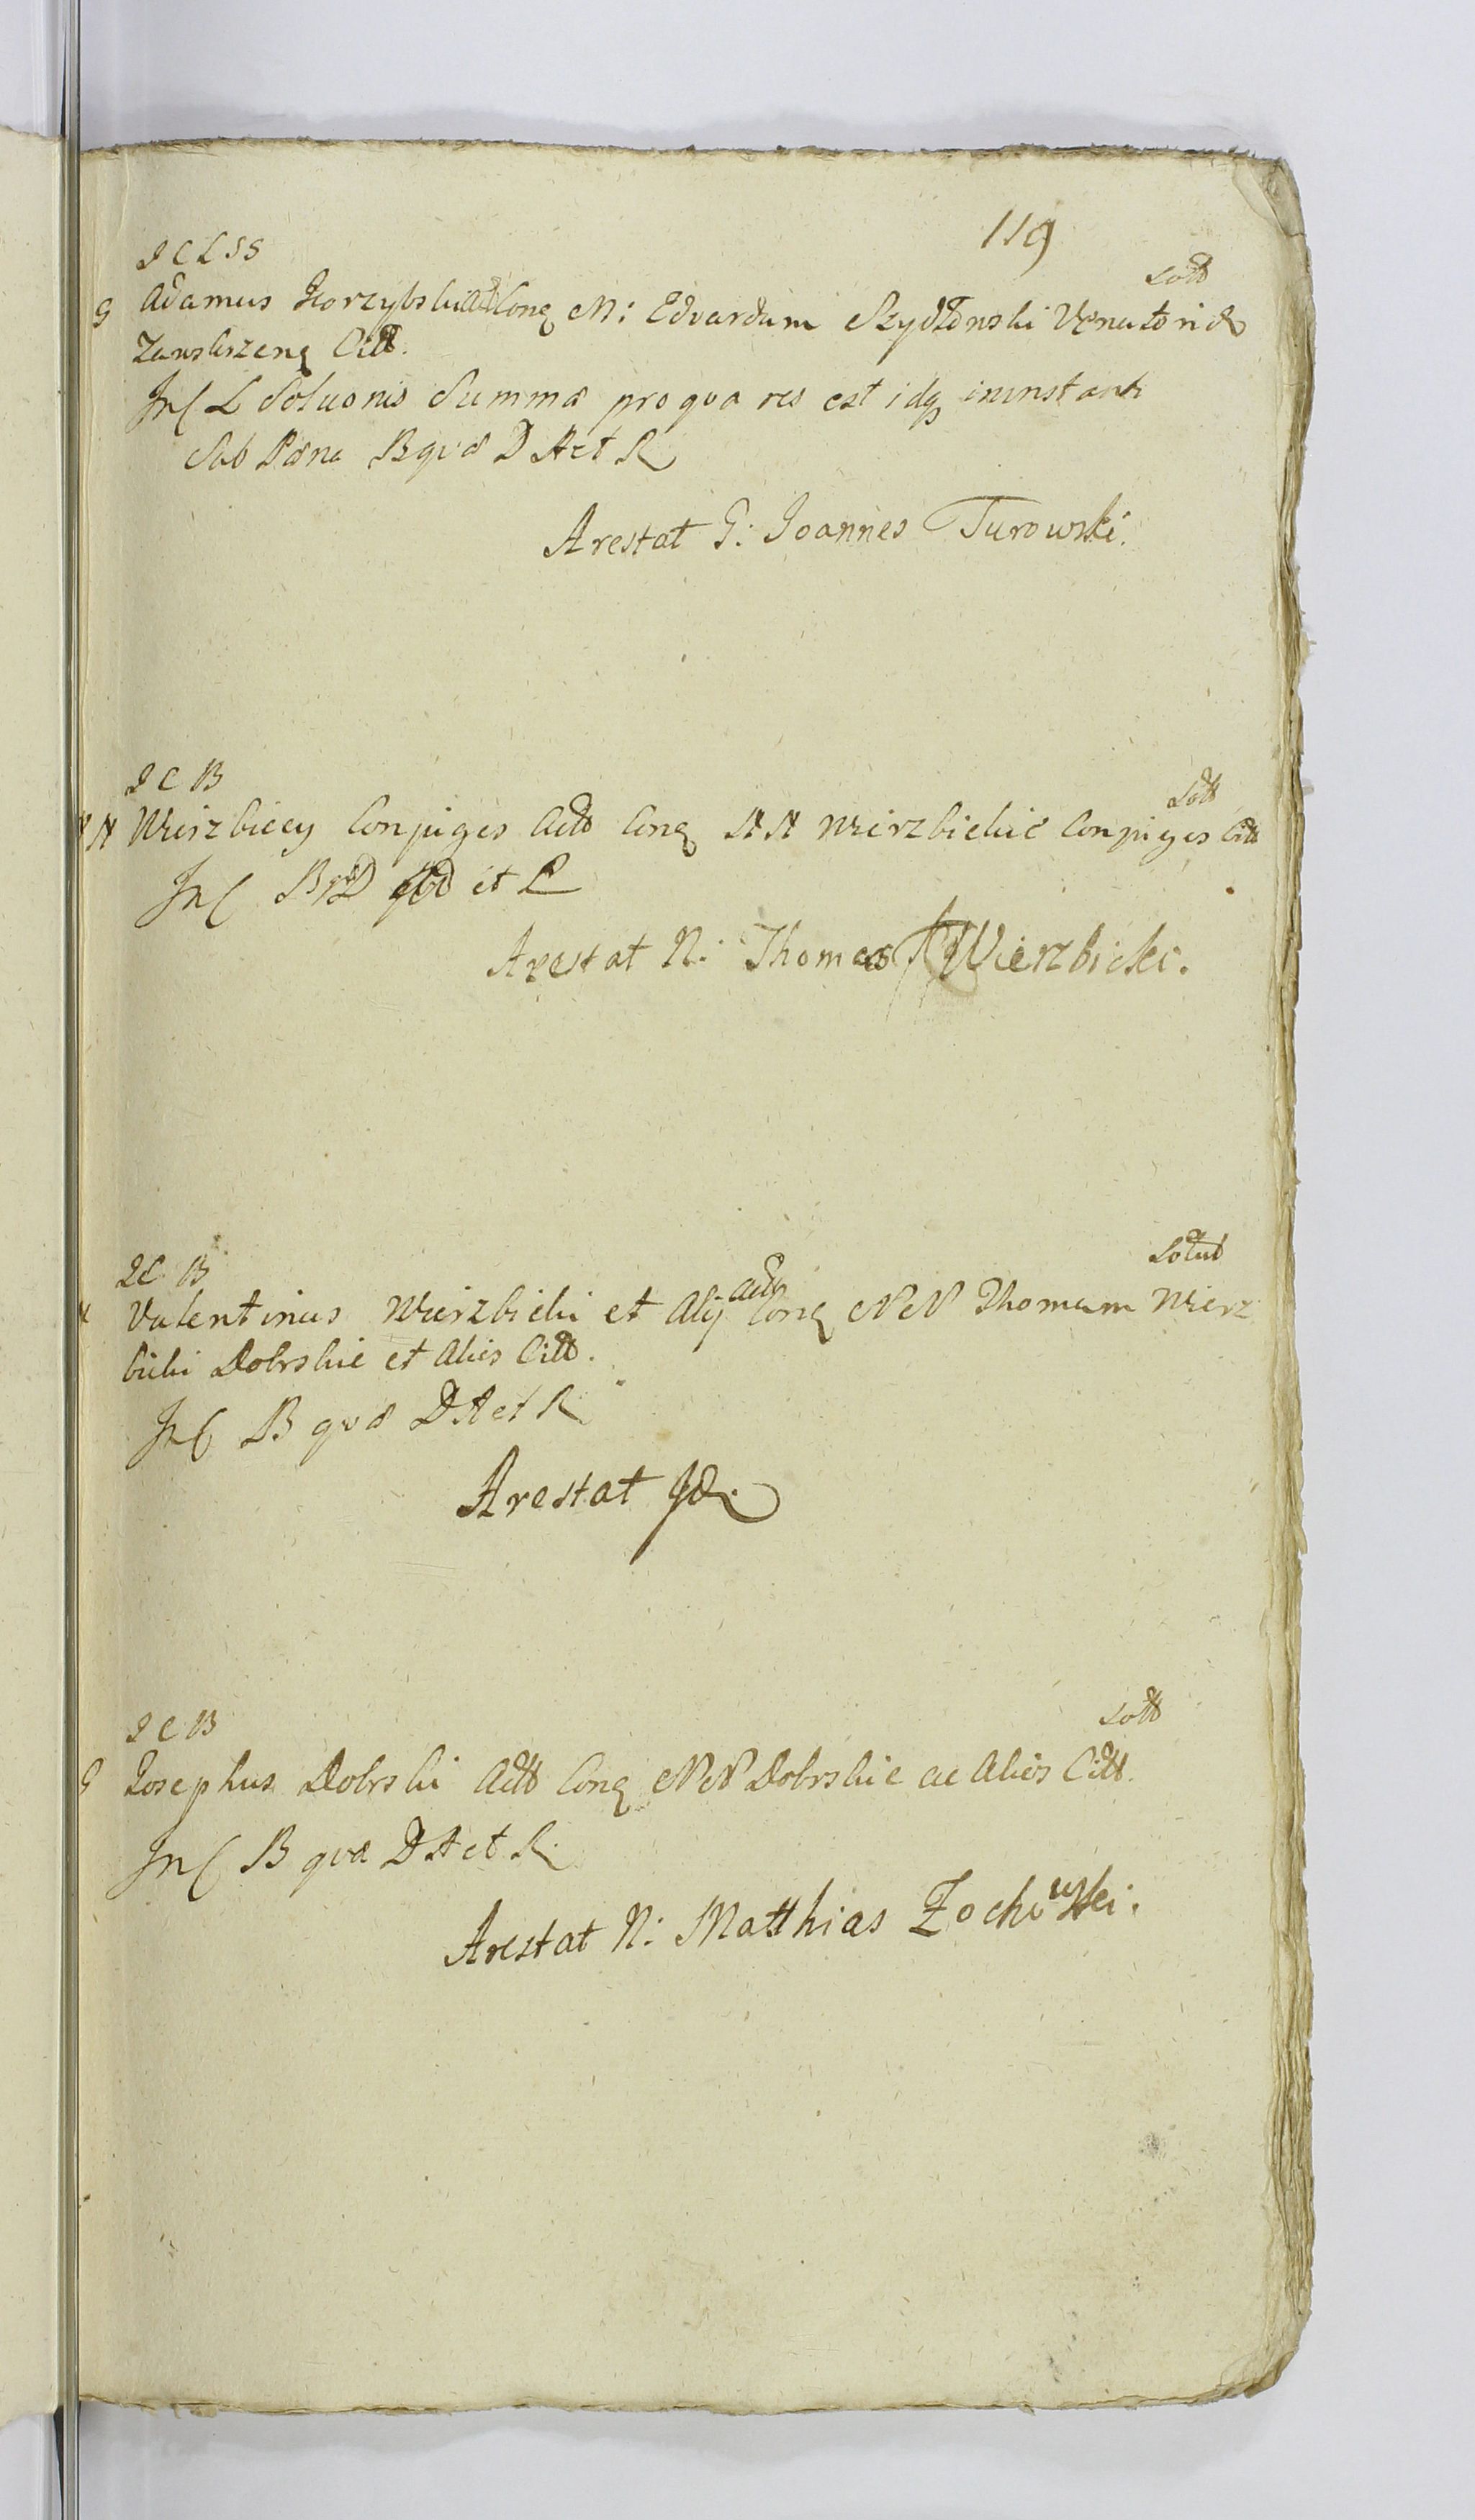 119
I C L S S
Sott
G Adamus Korzybski Actt Conq M: Edvardum Szydłowski Venatorid
Zawskrzenq Citt.
In C L Soluonis Summæ pro qva res est idq ininstanti
Sub Pæna B qvæ D A et R
Arestat G: Joannes Turowski.
I C B
Sott
N N Wierzbiccy Conjuges Actt Conq N N Wierzbickie Conjuges Citt
In C B qvæ D et R
Arestat N: Thomas Wierzbicki.
I C B
Solut
Valentinus Wierzbicki et Alij Actt Conq N N Thomam Wierz
bicki Dobrskie et Alios Citt.
In C B qvæ D A et R
Arestat Id.
I C B
Sott
G Josephus Dobrski Actt Conq N N Dobrskie ac Alios Citt.
In C B qvæ D A et R.
Arestat N: Matthias Żochowski.